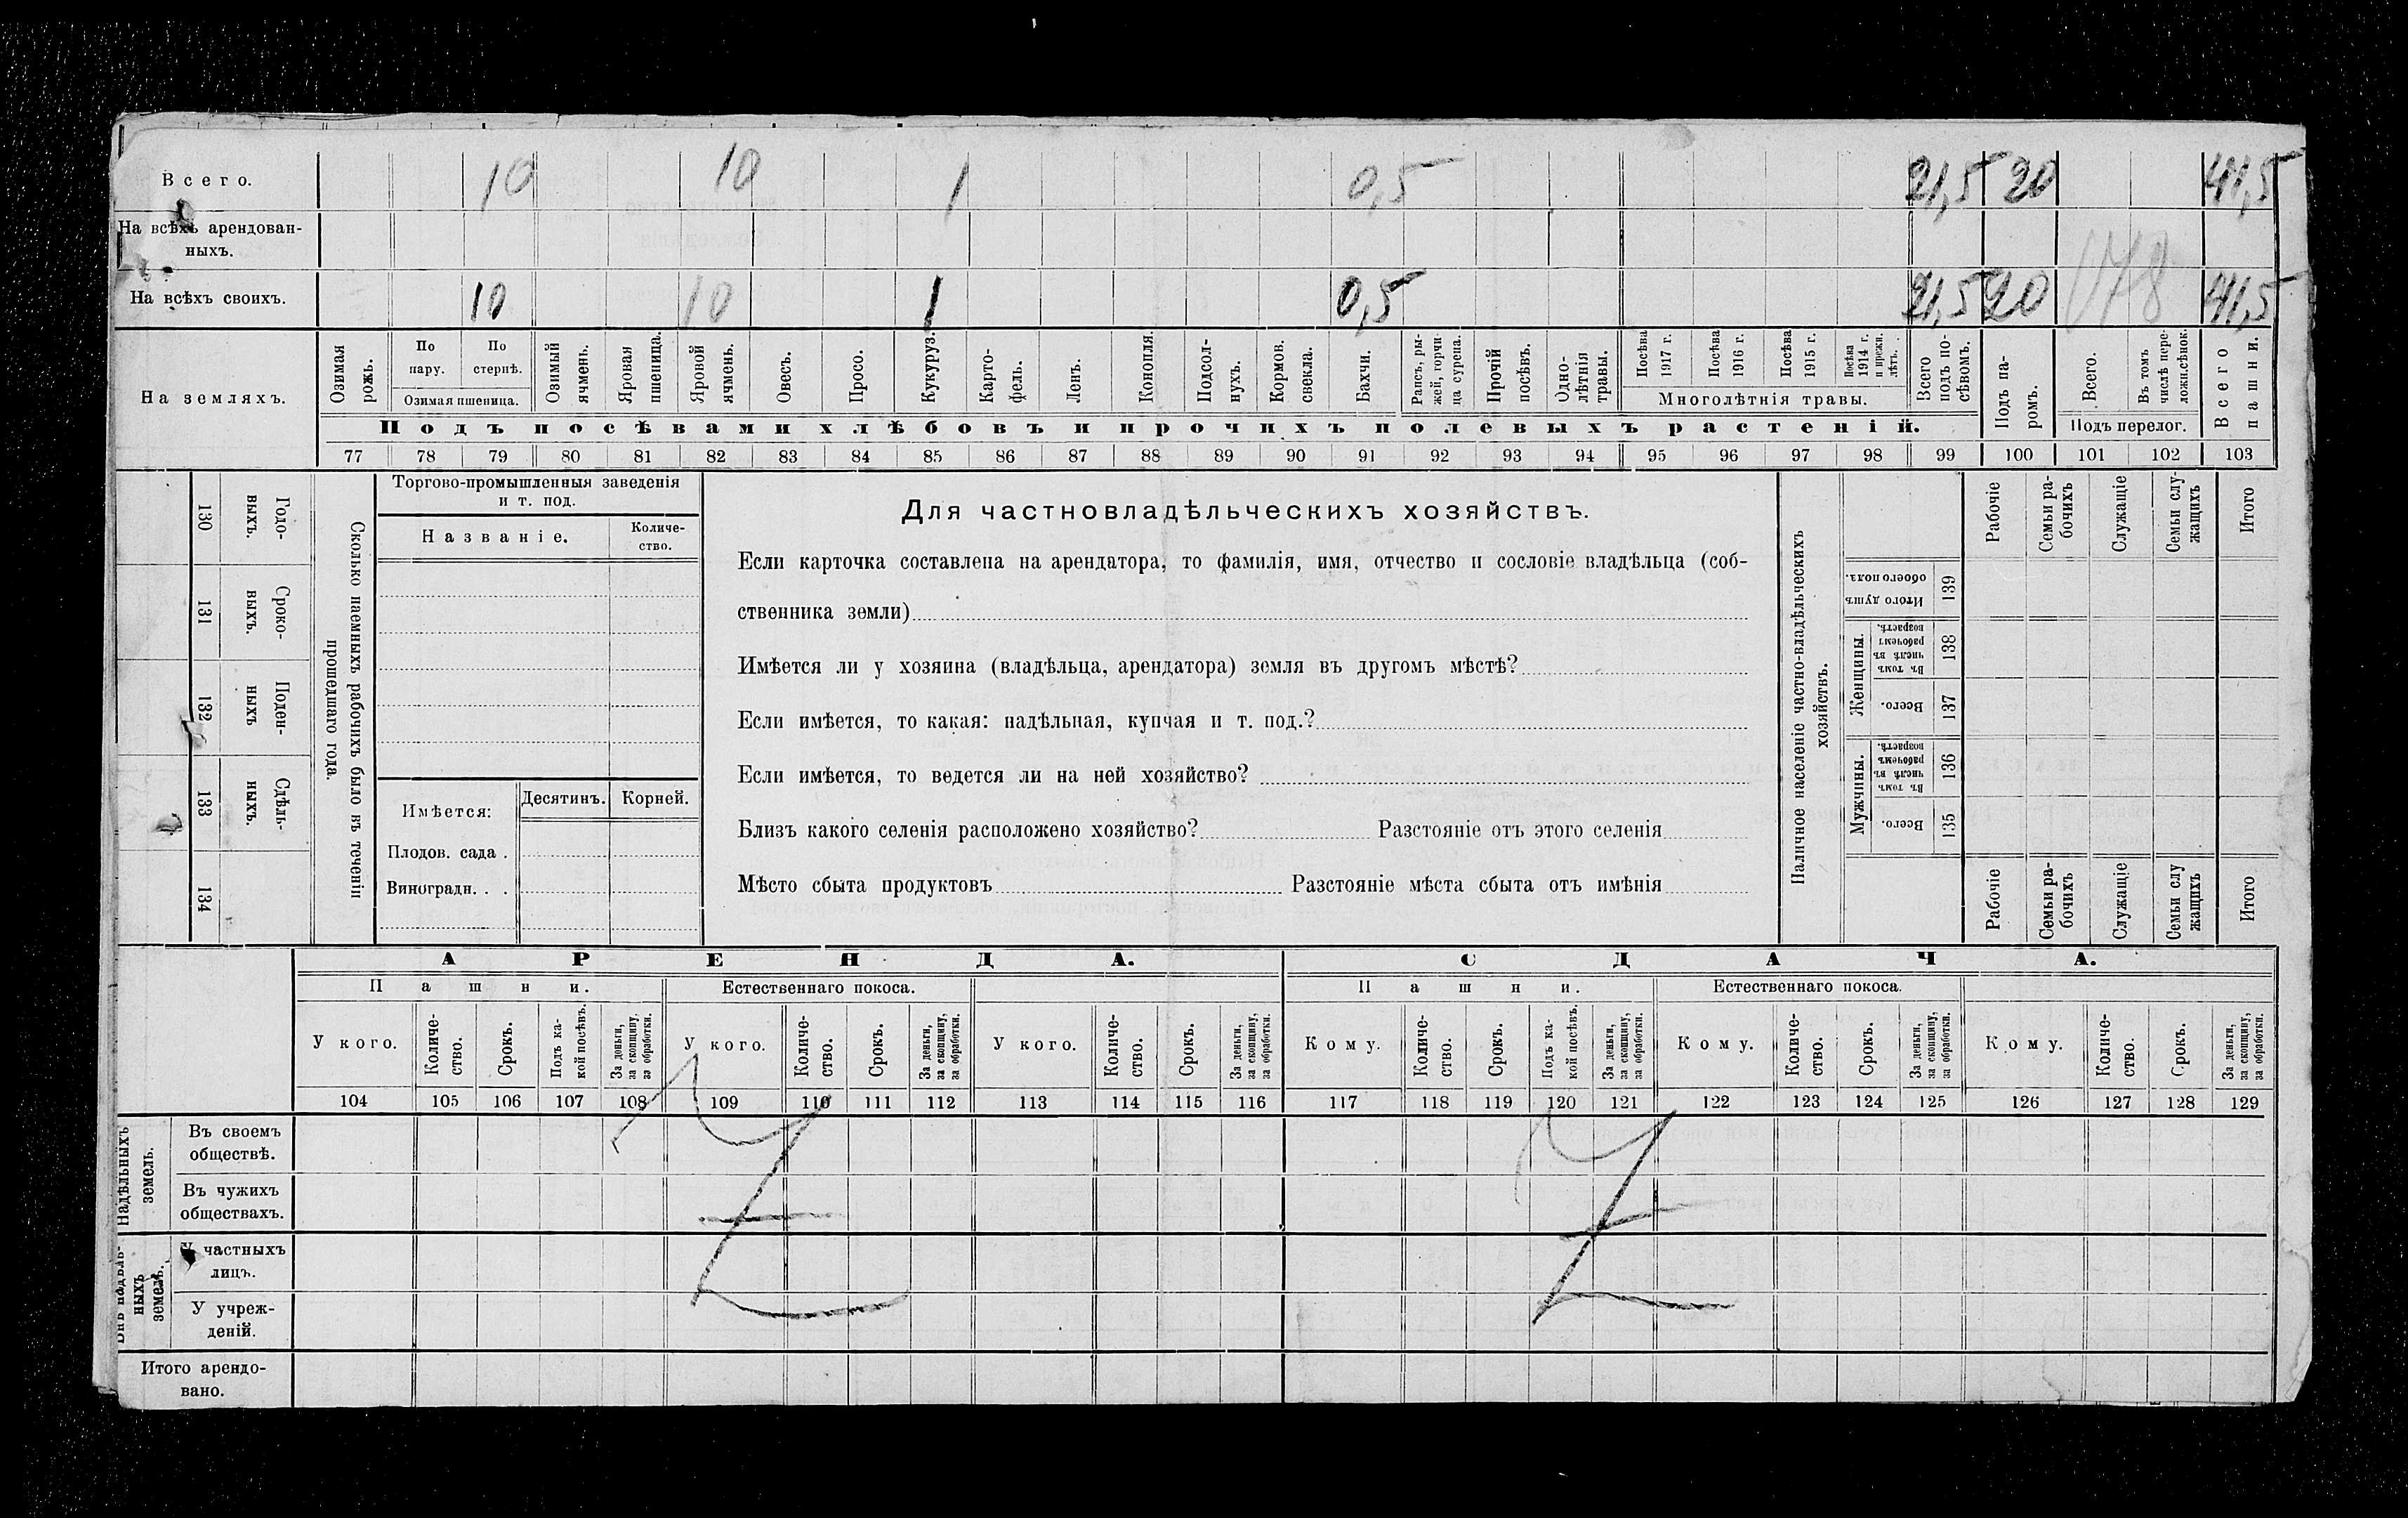 Всего. 10 10 1 0,5 21,5 20 41,5
На всѣхъ арендован-
ныхъ.
На всѣхъ своихъ. 10 10 1 0,5 21,5 20 41,5
На земляхъ.
Озимая рожь.
По пару.
По стернѣ.
Озимая пшеница.
Озимый ячмень.
Яровая пшеница.
Яровой ячмень.
Овесъ.
Просо.
Кукуруз.
Карто-
фель.
Ленъ.
Конопля.
Подсол-
нухъ.
Кормов. свекла.
Бахчи.
Рапсъ, ры-
жей, горчи-
ца сурепа.
Прочій посѣвъ.
Одно-
лѣтнія травы.
Посѣва 1917 г.
Посѣва 1916 г.
Посѣва 1915 г.
Посѣва 1914 г. и прежн. лѣтъ.
Многолѣтнія травы.
Всего подъ по-
сѣвомъ.
Подъ па-
ромъ.
Всего.
Въ томъ числѣ пере-
ложн. сѣнок.
Подъ перелог.
Всего пашни.
Подъ посѣвами хлѣбовъ и прочихъ полевыхъ растеній.
77 78 79 80 81 82 83 84 85 86 87 88 89 90 91 92 93 94 95 96 97 98 99 100 101 102 103
130 Годо-
выхъ.
131 Сроко-
выхъ.
132 Поден-
ныхъ
133 Сдѣль-
ныхъ.
134
Сколько наемныхъ рабочихъ было въ теченіи
прошедшаго года.
Торгово-промышленныя заведенія
и т. под.
Названіе.
Количе-
ство.
Имѣется:
Десятинъ.
Корней.
Плодов. сада .
Виноградн. . .
Для частновладѣльческихъ хозяйствъ.
Если карточка составлена на арендатора, то фамилія, имя, отчество и сословіе владѣльца (соб-
ственника земли)
Имѣется ли у хозяина (владѣльца, арендатора) земля въ другомъ мѣстѣ?
Если имѣется, то какая: надѣльная, купчая и т. под.?
Если имѣется, то ведется ли на ней хозяйство?
Близъ какого селенія расположено хозяйство? Разстояніе отъ этого селенія
Мѣсто сбыта продуктовъ Разстояніе мѣста сбыта отъ имѣнія
Наличное населеніе частно-владѣльческихъ
хозяйствъ.
Рабочіе
Семьи ра-
бочихъ
Служащіе
Семьи слу-
жащихъ
Итого
Итого душъ обоего пола. 139
Женщины.
Въ томъ числѣ въ рабочемъ возрастѣ. 138
Всего. 137
Мужчины.
Въ томъ числѣ въ рабочемъ возрастѣ. 136
Всего. 135
Рабочіе
Семьи ра-
бочихъ
Служащіе
Семьи слу
жащихъ
Итого
АРЕНДА. СДАЧА.
Пашни. Естественнаго покоса. Пашни. Естественнаго покоса.
У кого.
Количе-
ство.
Срокъ.
Подъ ка-
кой посѣвъ.
За деньги,
за скопщину,
за обработки.
У кого.
Количе-
ство.
Срокъ.
За деньги,
за скопщину,
за обработки.
У кого.
Количе-
ство.
Срокъ.
За деньги,
за скопщину,
за обработки.
Кому.
Количе-
ство.
Срокъ.
Подъ ка-
кой посѣвъ.
За деньги,
за скопщину,
за обработки.
Кому.
Количе-
ство.
Срокъ.
За деньги,
за скопщину,
за обработки.
Кому.
Количе-
ство.
Срокъ.
За деньги,
за скопщину,
за обработки.
104 105 106 107 108 109 110 111 112 113 114 115 116 117 118 119 120 121 122 123 124 125 126 127 128 129
Надѣльныхъ
земель.
Въ своемъ
обществѣ.
Въ чужихъ
обществахъ.
Внѣ надѣль-
ныхъ
земель.
У частныхъ
лицъ.
У учреж-
деній.
Итого арендо-
вано.